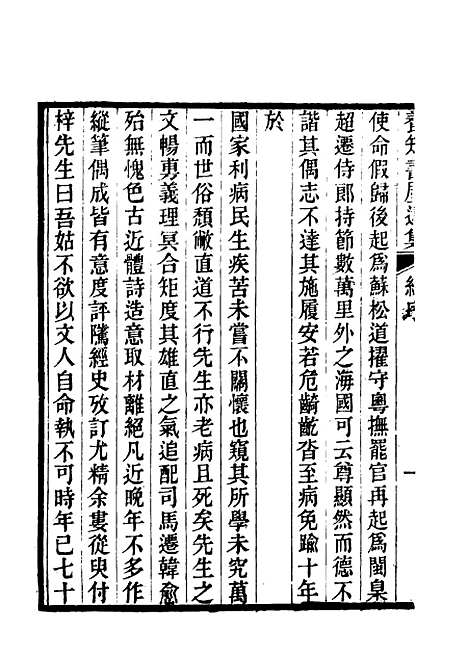 養知書屋遺集 總序 一
使命假歸後起爲蘇松道擢守粵撫罷官再起爲閩臬
超遷侍郎持節數萬里外之海國可云尊顯然而德不
諧其偶志不達其施履安若危齮齕沓至病免踰十年
於
國家利病民生疾苦未嘗不關懷也窺其所學未究萬
一而世俗頹敝直道不行先生亦老病且死矣先生之
文暢勇義理冥合矩度其雄直之氣追配司馬遷韓愈
殆無愧色古近體詩造意取材離絕凡近晚年不多作
縱筆偶成皆有意度評隲經史攷訂尤精余婁從臾付
梓先生曰吾姑不欲以文人自命執不可時年已七十